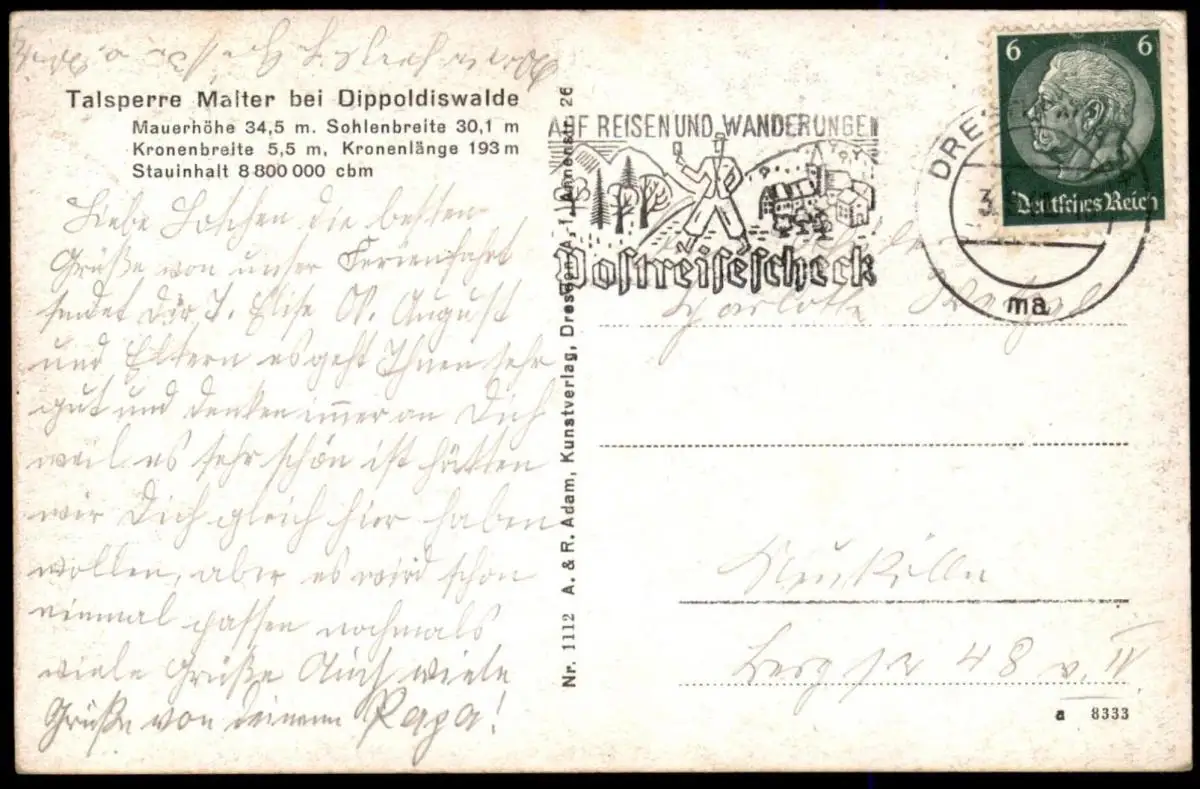 Talsperre Malter bei Dippoldiswalde
Mauerhöhe 34,5 m. Sohlenbreite 30,1 m
Kronenbreite 5,5 m, Kronenlänge 193 m
Stauinhalt 8 800 000 cbm
Liebe die besten
Grüße von unser Ferienfahrt
sendet dir T. Elise O. August
und Eltern es geht Ihnen sehr
gut und denken immer an Dich
weil es sehr schön ist hätten
wir Dich gleich hier haben
wollen, aber es wird schon
einmal passen nochmals
viele Grüße Auch viele
Grüße von deinem Papa!
Nr. 1112 A. & R. Adam, Kunstverlag, Dresden A. 1, Annenstr. 26
AUF REISEN UND WANDERUNGEN
Postreisescheck
6 6
Deutsches Reich
DRE
ma
Charlotte
Neukölln
Bergstr 48 v. IV
a 8333